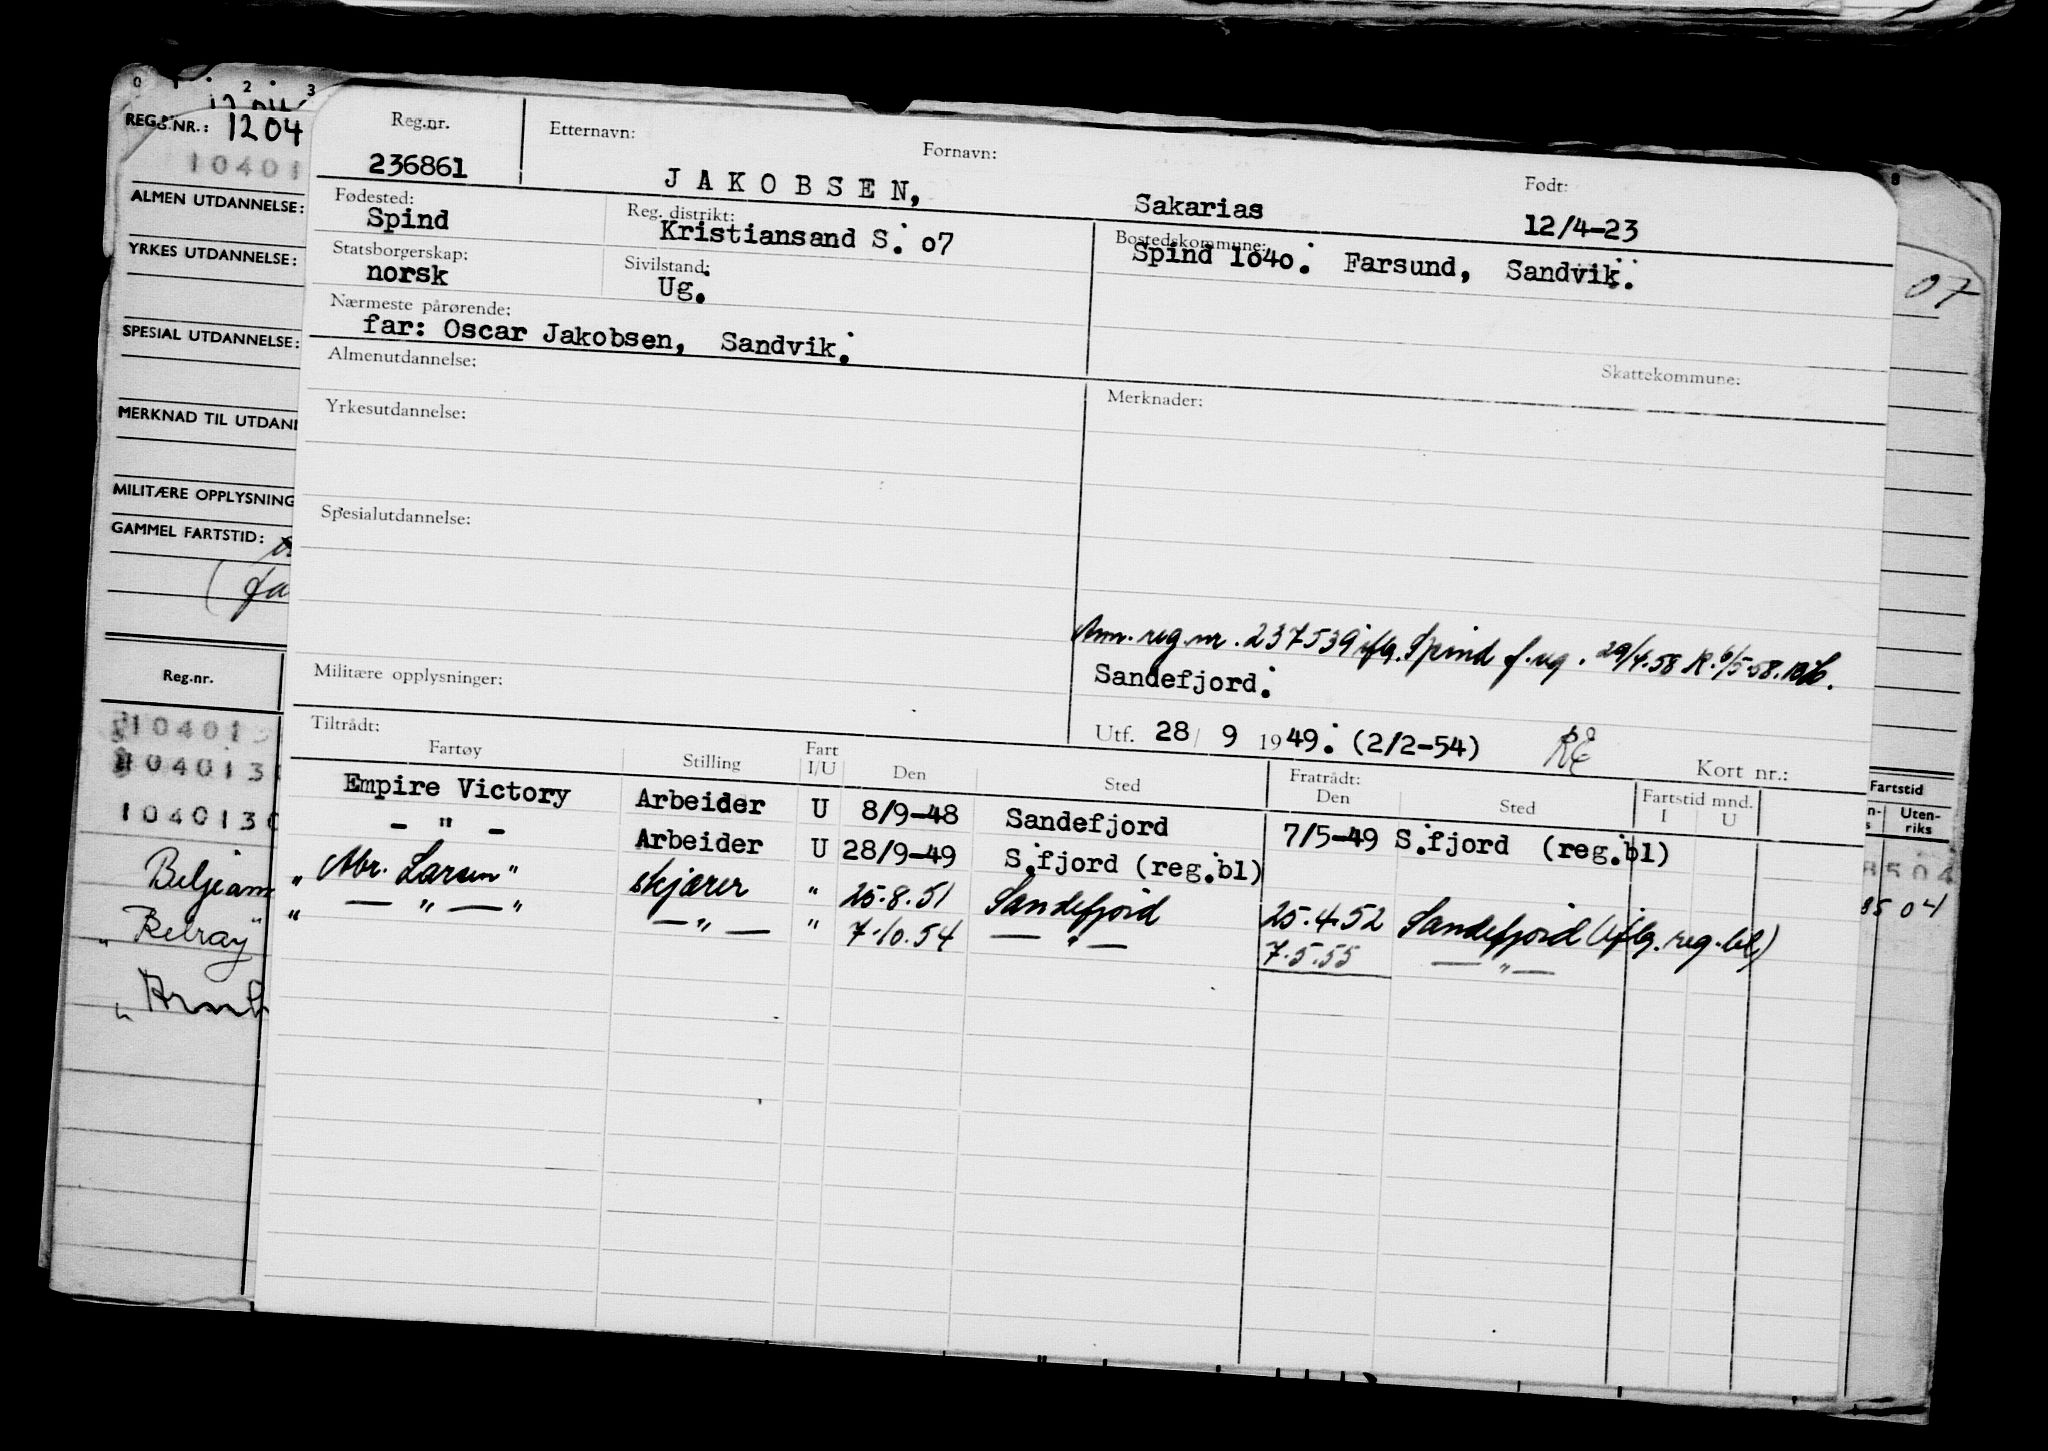 0 1 2 3
REG.NR.: 1204
10401
ALMEN UTDANNELSE:
YRKES UTDANNELSE:
SPESIAL UTDANNELSE:
MERKNAD TIL UTDAN
MILITÆRE OPPLYSNING
GAMMEL FARTSTID:
Reg.nr.
104013
104013
104013
Beljeam
„ Belray"
07
Fartstid
Uten-
riks
8504
85 04
Reg.nr. Etternavn: Fornavn: Født:
236861 JAKOBSEN, Sakarias 12/4-23
Fødested: Reg. distrikt: Bostedskommune:
Spind Kristiansand S. o7 Spind 1o4o. Farsund, Sandvik.
Statsborgerskap: Sivilstand:
norsk Ug.
Nærmeste pårørende:
far: Oscar Jakobsen, Sandvik.
Skattekommune:
Almenutdannelse: Merknader:
Yrkesutdannelse:
Spesialutdannelse:
Ann. reg.nr. 237539 iflg. Spind f. reg. 29/4.58 R. 6/5-58.
Militære opplysninger: Sandefjord.
Utf. 28/ 9 1949. (2/2-54) RE Kort nr.:
Tiltrådt: Fratrådt:
Fartøy Stilling Fart I/U Den Sted Den Sted Fartstid mnd. I U
Empire Victory Arbeider U 8/9-48 Sandefjord 7/5-49 S.fjord (reg.bl)
- " - Arbeider U 28/9-49 S.fjord (reg.bl)
„ Abr. Larsen" skjærer " 25.8.51 Sandefjord 25.4.52 Sandefjord (iflg. reg.bl)
" — " — " — " — " 7.10.54 — " — 7.5.55 — " —